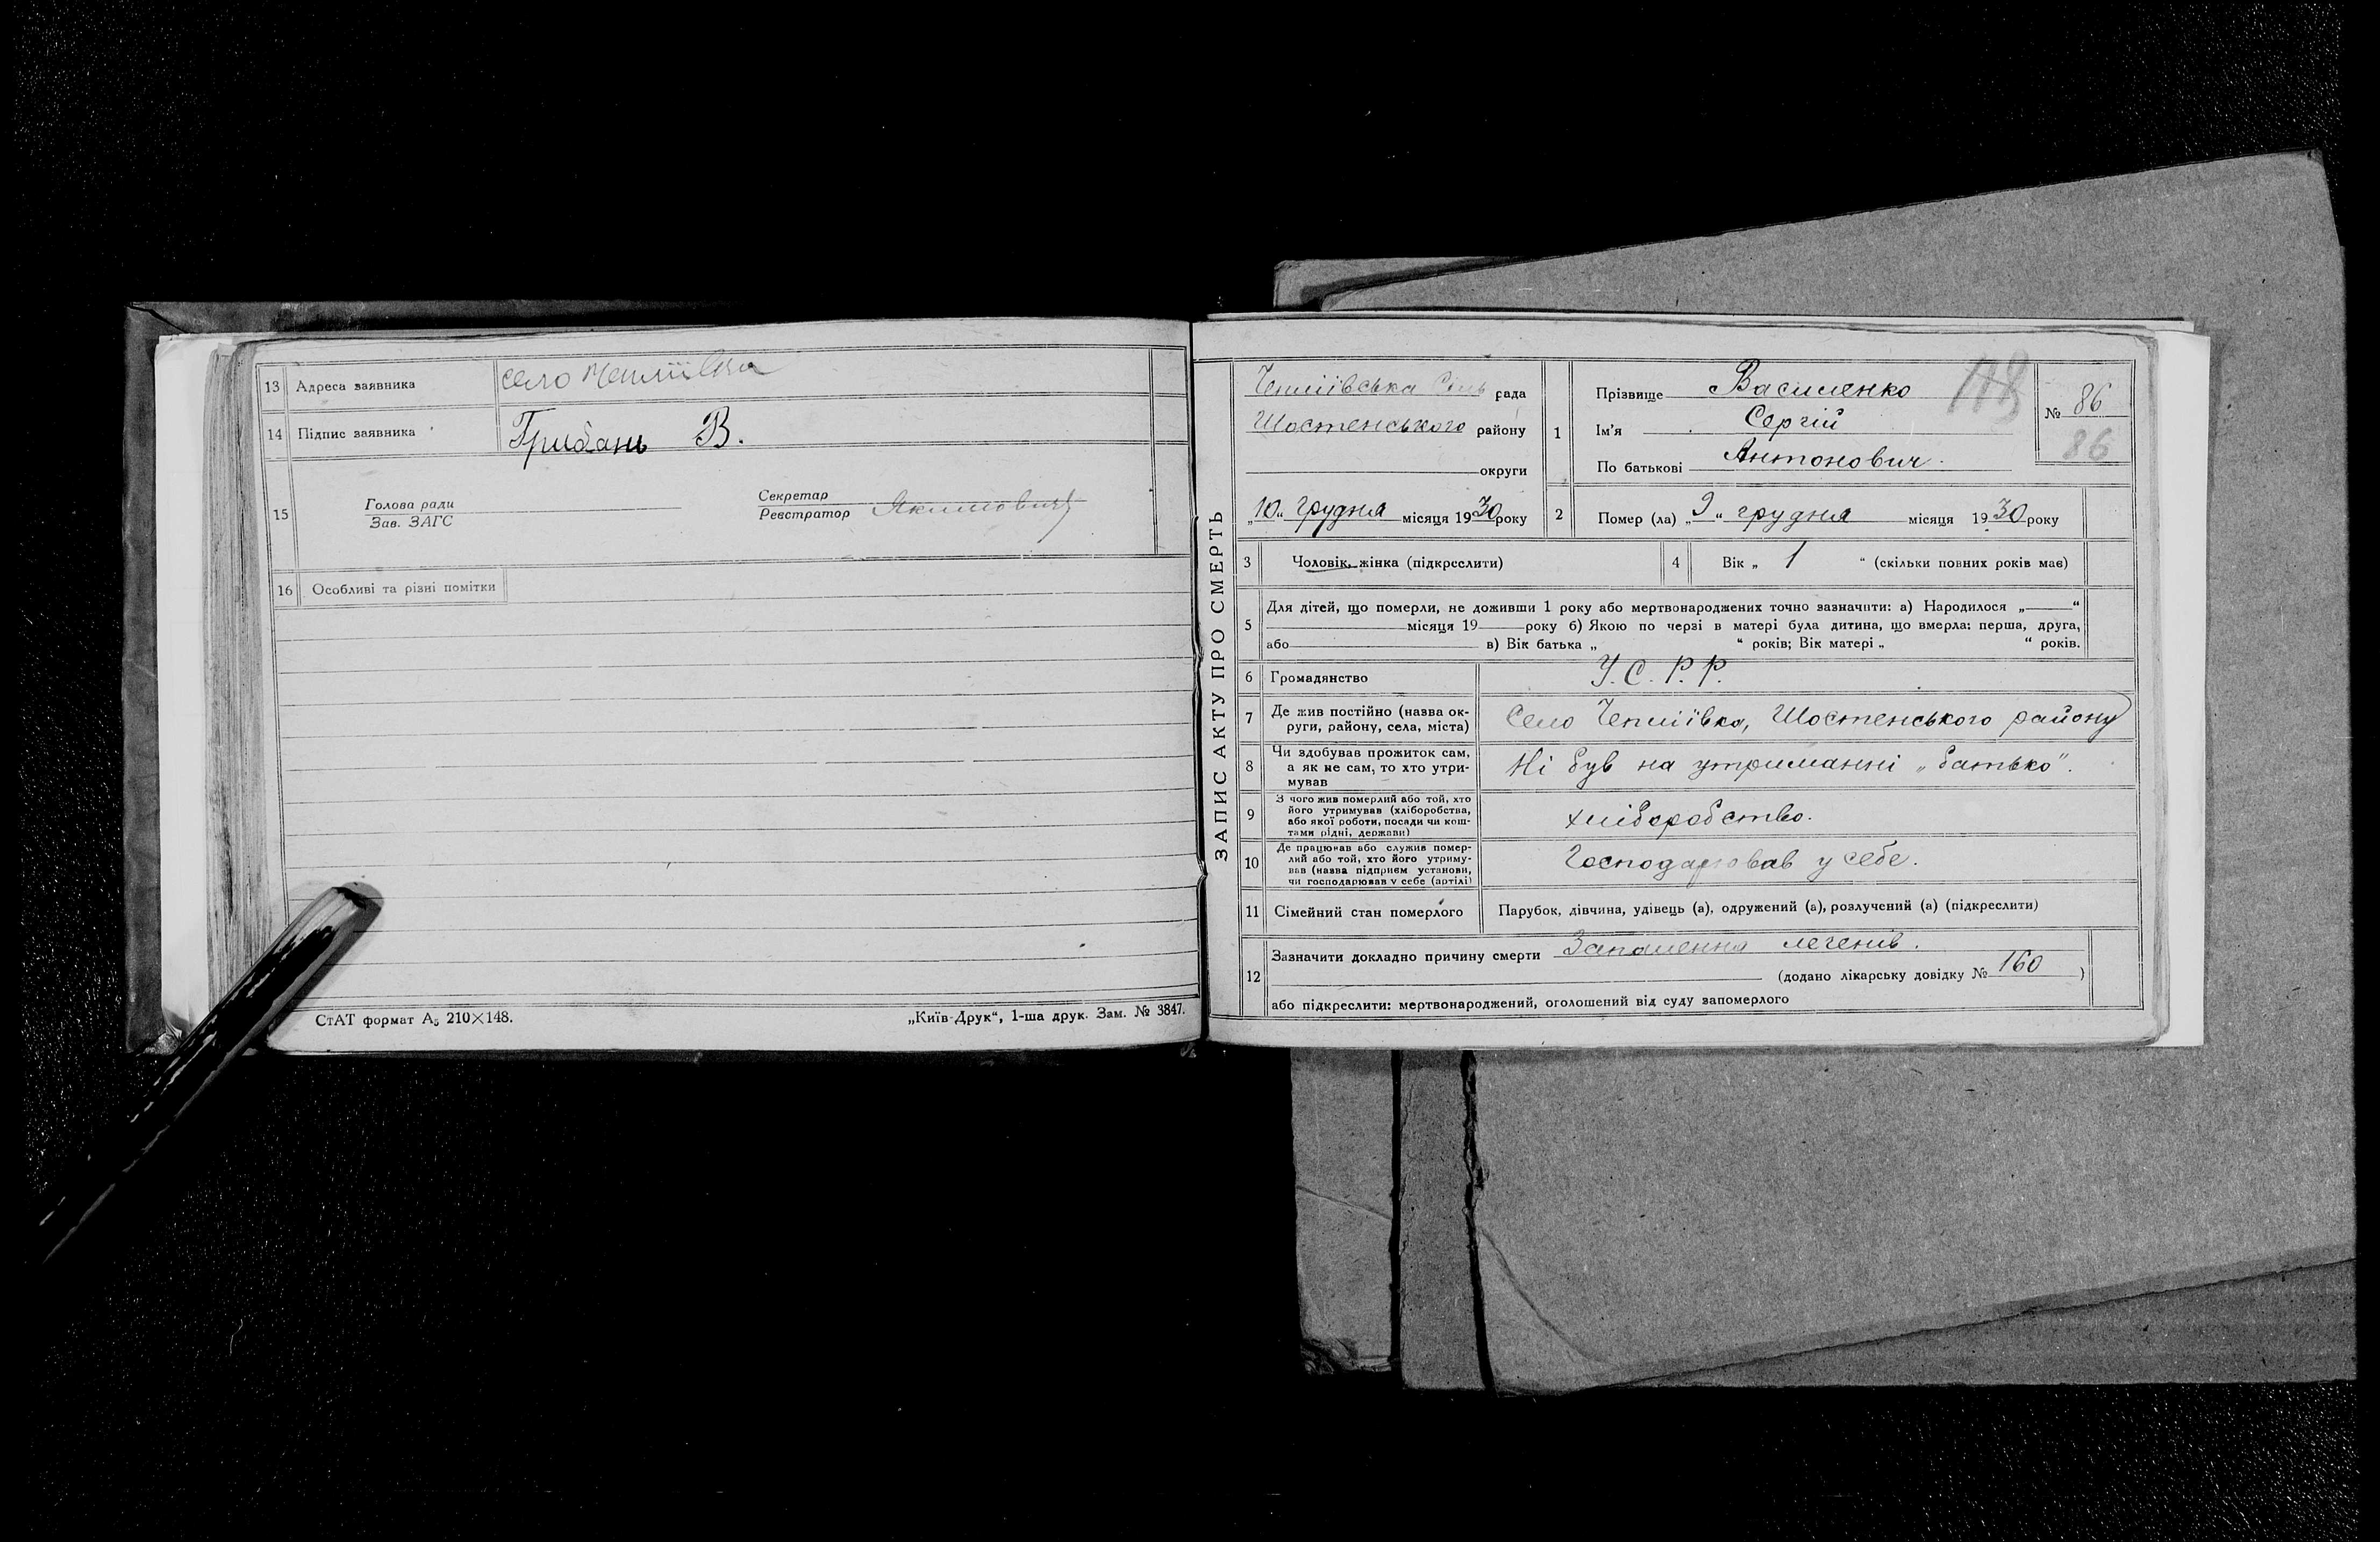 13 Адреса заявника село Чепліївка
14 Підпис заявника Грибань В.
15 Голова ради
Зав. ЗАГС
Секретар
Реєстратор Якимович
16 Особливі та різні помітки
СтАТ формат А₅ 210×148.
„Київ-Друк“, 1-ша друк. Зам. № 3847.
ЗАПИС АКТУ ПРО СМЕРТЬ
Чепліївська Сіль рада
Шостенського району
округи
„10“ грудня місяця 1930 року
1 Прізвище Василенко
Ім'я Сергій
По батькові Антонович
№ 86
86
2 Помер (ла) „9“ грудня місяця 1930 року
3 Чоловік, жінка (підкреслити)
4 Вік „ 1 “ (скільки повних років має)
5 Для дітей, що померли, не доживши 1 року або мертвонароджених точно зазначити: а) Народилося „ “
місяця 19 року б) Якою по черзі в матері була дитина, що вмерла: перша, друга,
або в) Вік батька „ “ років; Вік матері „ “ років.
6 Громадянство У.С.Р.Р.
7 Де жив постійно (назва ок-
руги, району, села, міста) Село Чепліївка, Шостенського району
8 Чи здобував прожиток сам,
а як не сам, то хто утри-
мував Ні був на утриманні „батько“.
9 З чого жив померлий або той, хто
його утримував (хліборобства,
або якої роботи, посади чи кош-
тами рідні, держави) хліборобство.
10 Де працював або служив помер-
лий або той, хто його утриму-
вав (назва підприєм установи,
чи господарював у себе (артілі) Господарював у себе.
11 Сімейний стан померлого Парубок, дівчина, удівець (а), одружений (а), розлучений (а) (підкреслити)
12 Зазначити докладно причину смерти Запалення легенів.
(додано лікарську довідку № 160 )
або підкреслити: мертвонароджений, оголошений від суду запомерлого